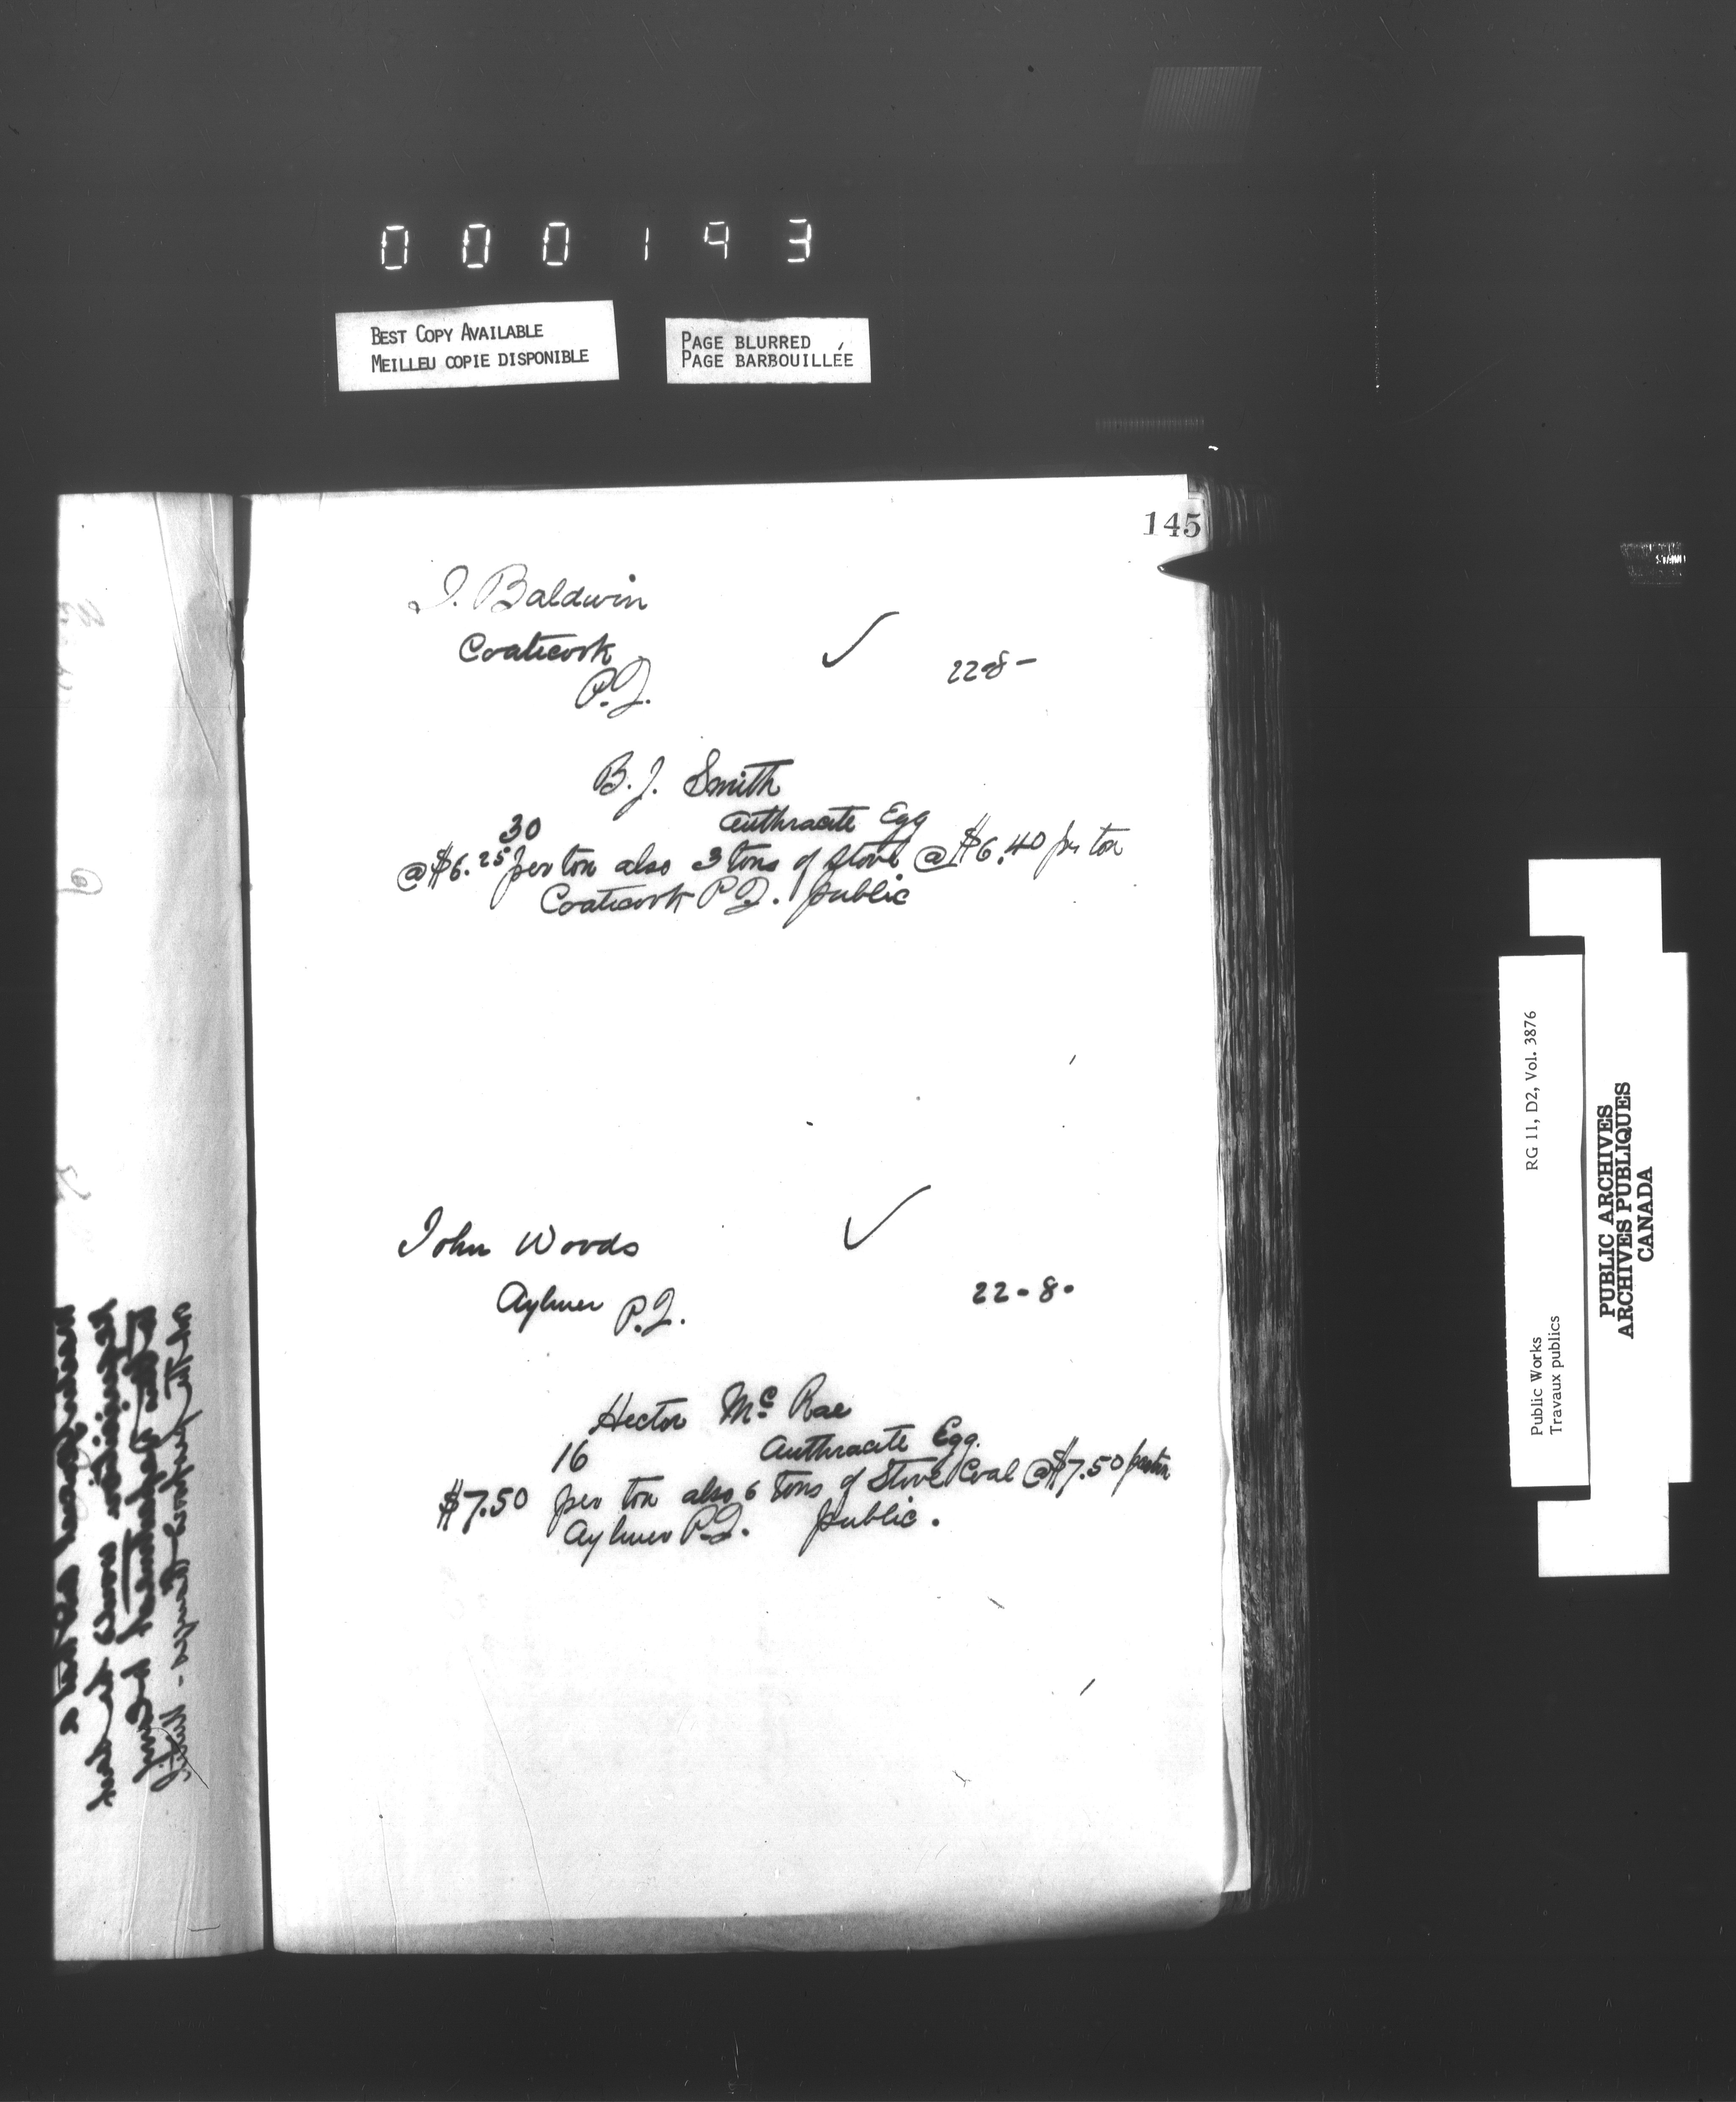 000193
BEST COPY AVAILABLE
MEILLEU COPIE DISPONIBLE
PAGE BLURRED
PAGE BARBOUILLÉE
145
I. Baldwin
Coaticook
P.Q.
22-8-
B. J. Smith
30 Anthracite Egg
@ $6.25 per ton also 3 tons of Stove @ $6.40 per ton
Coaticook P.Q. public
John Woods
Aylmer P.Q.
22-8-
Hector Mc Rae
16 Anthracite Egg.
$7.50 per ton also 6 tons of Stove Coal @ $7.50 per ton
Aylmer P.Q. public.
Public Works RG 11, D2, Vol. 3876
Travaux publics
PUBLIC ARCHIVES
ARCHIVES PUBLIQUES
CANADA